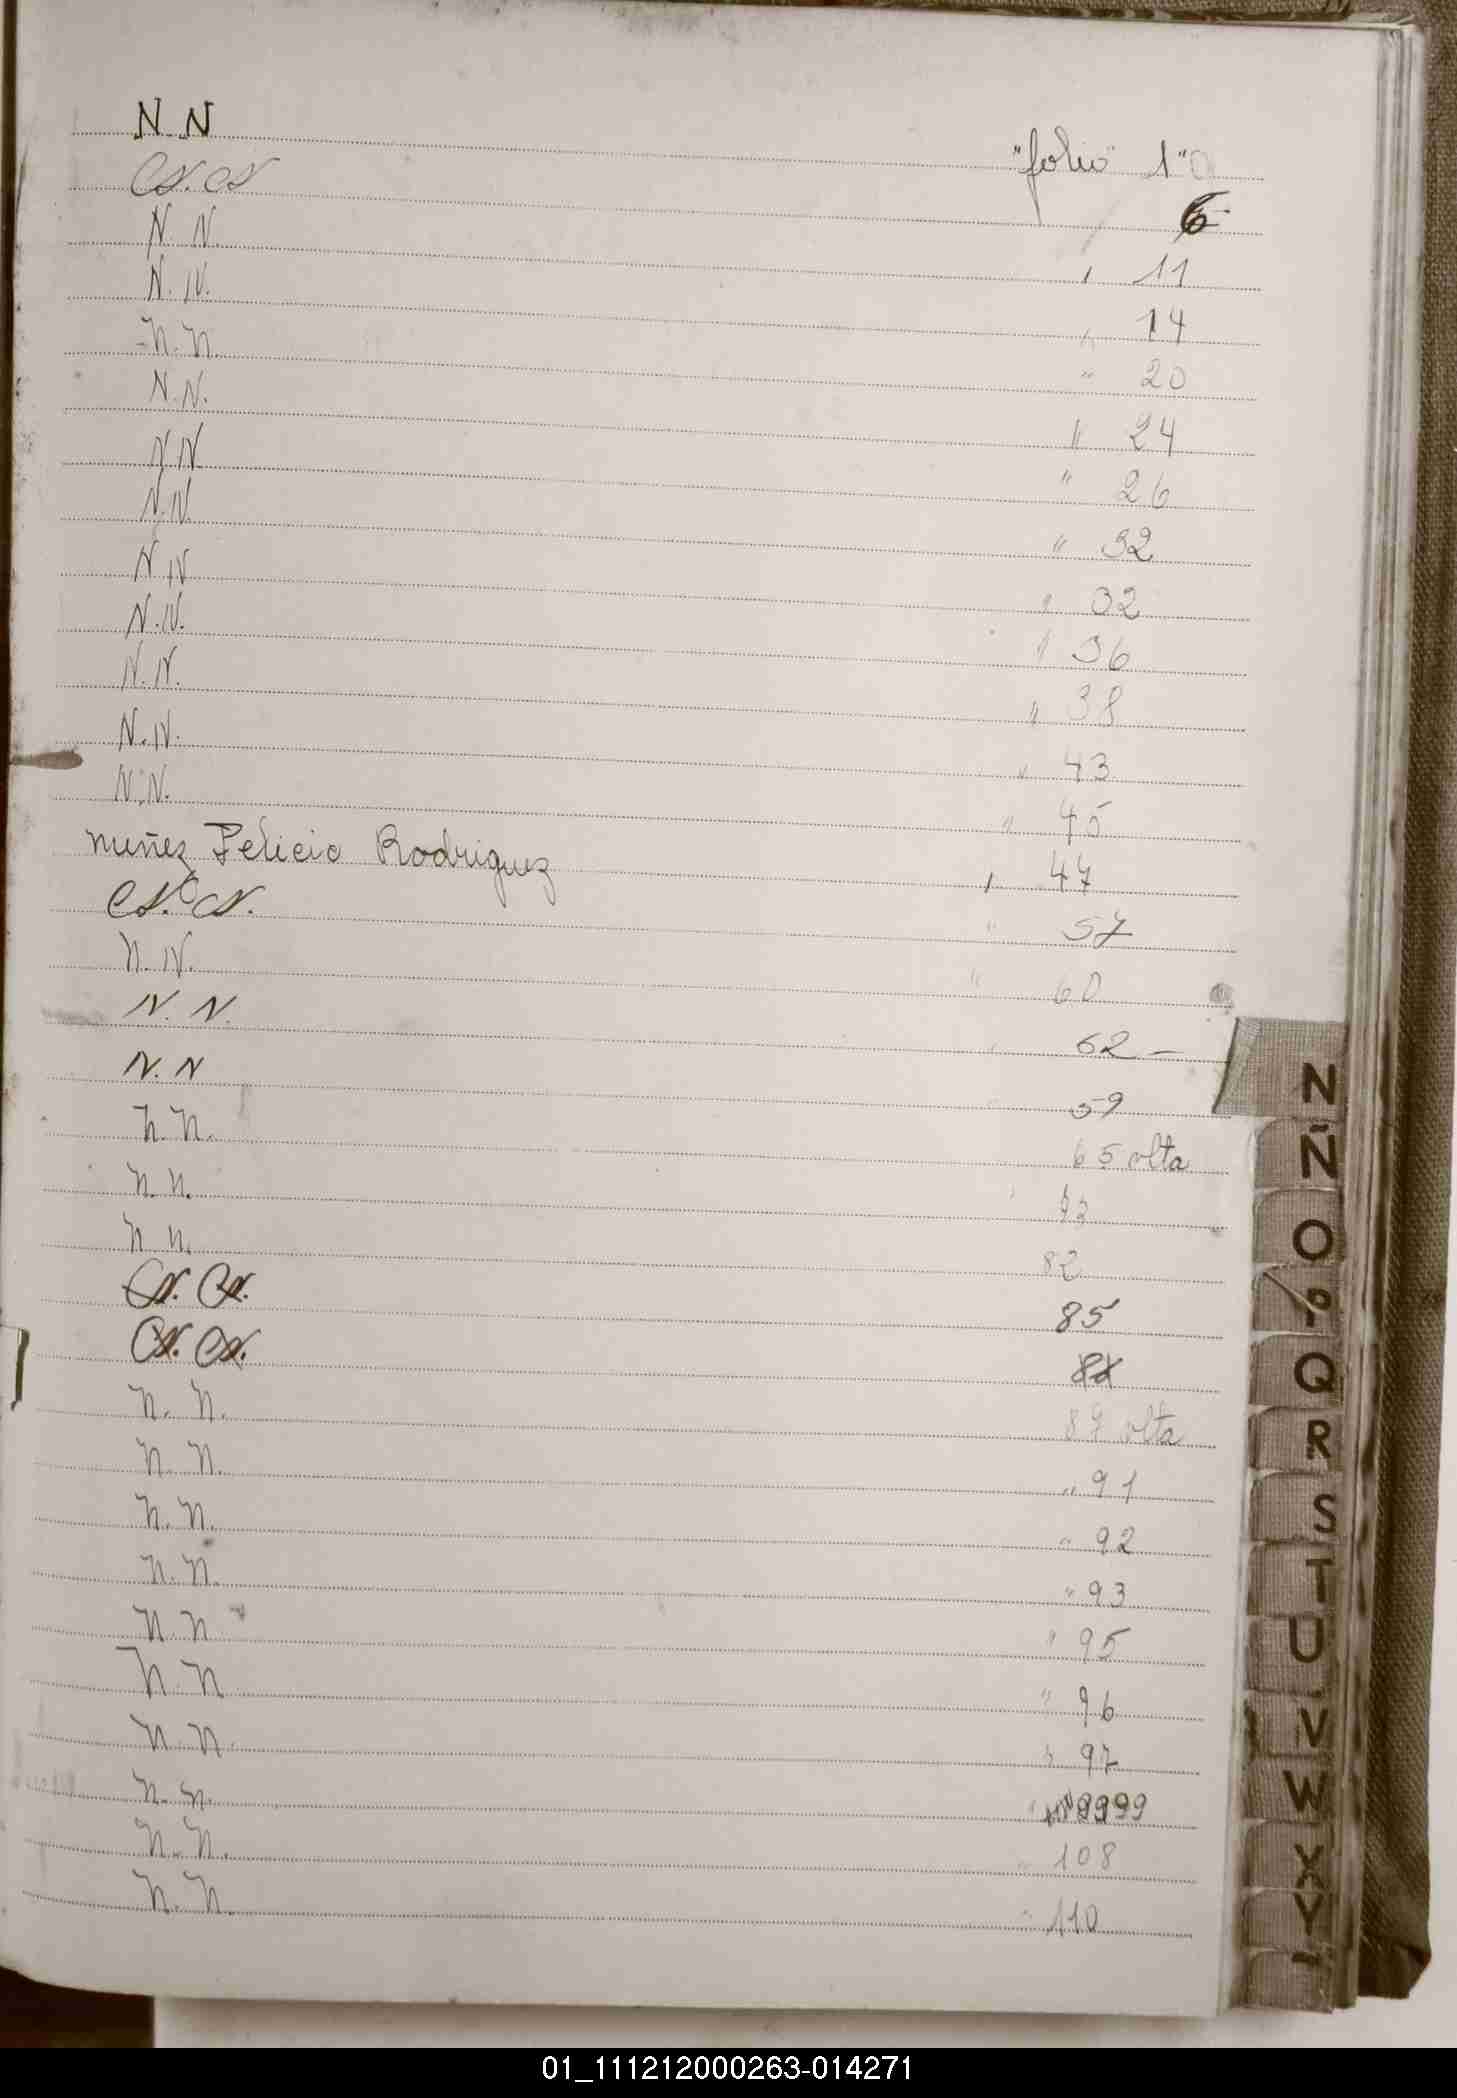 N. N "folio" 1"
N. N 6
N. N. " 11
N. N. " 14
N. N. " 20
N. N. " 24
N. N. " 26
N. N. " 32
N. N " 32
N. N. " 36
N. N. " 38
N. N. " 43
N. N. " 45
nuñez Felicio Rodriguez " 47
N. N. " 57
N. N. " 60
N. N. " 62 –
N. N 59
N. N. 65 vlta
N. N. 73
N. N. 82
N. N. 85
N. N. 88
N. N. 87 vlta
N. N. " 91
N. N. " 92
N. N. " 93
N. N " 95
N. N " 96
N. N. " 97
N. N. " 99
N. N. " 108
N. N. " 110
N
Ñ
O
P
Q
R
S
T
U
V
W
X
Y
01_111212000263-014271